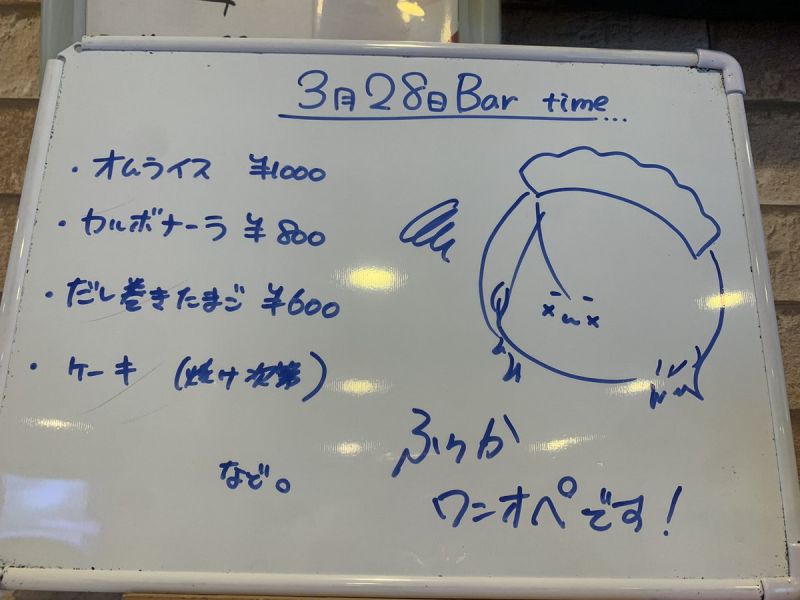 3月28日Bar time...
・オムライス ¥1000
・カルボナーラ ¥800
・だし巻きたまご ¥600
・ケーキ (焼け次第)
など。
ふうか
ワンオペです!